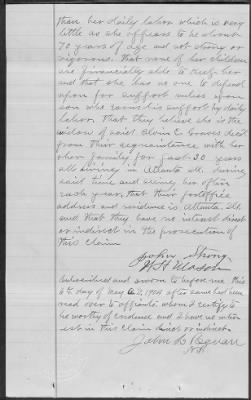 than her daily labor which is very
little as she appears to be about
70 years of age and not strong or
vigorous. that none of her children
are financially able to help her
and that she has no one to depend
upon for support unless upon
son who earns his support by daily
labor. That they believe she is the
widow of said Alvin C Graves decd
from their acquaintance with her
& her family for past 30 years
all living in Atlanta Ill. during
said time and seeing her often
each year, that their postoffice
address and residence is Atlanta. Ills
and that they have no interest direct
or indirect in the prosecution of
this claim
John Strong
W H Mason
Subscribed and sworn to before me this
day of May A.D. 1904 after same had been
read over to affiants whom I certify to
be worthy of credence and I have no inter
est in this claim direct or indirect
John L Bevan